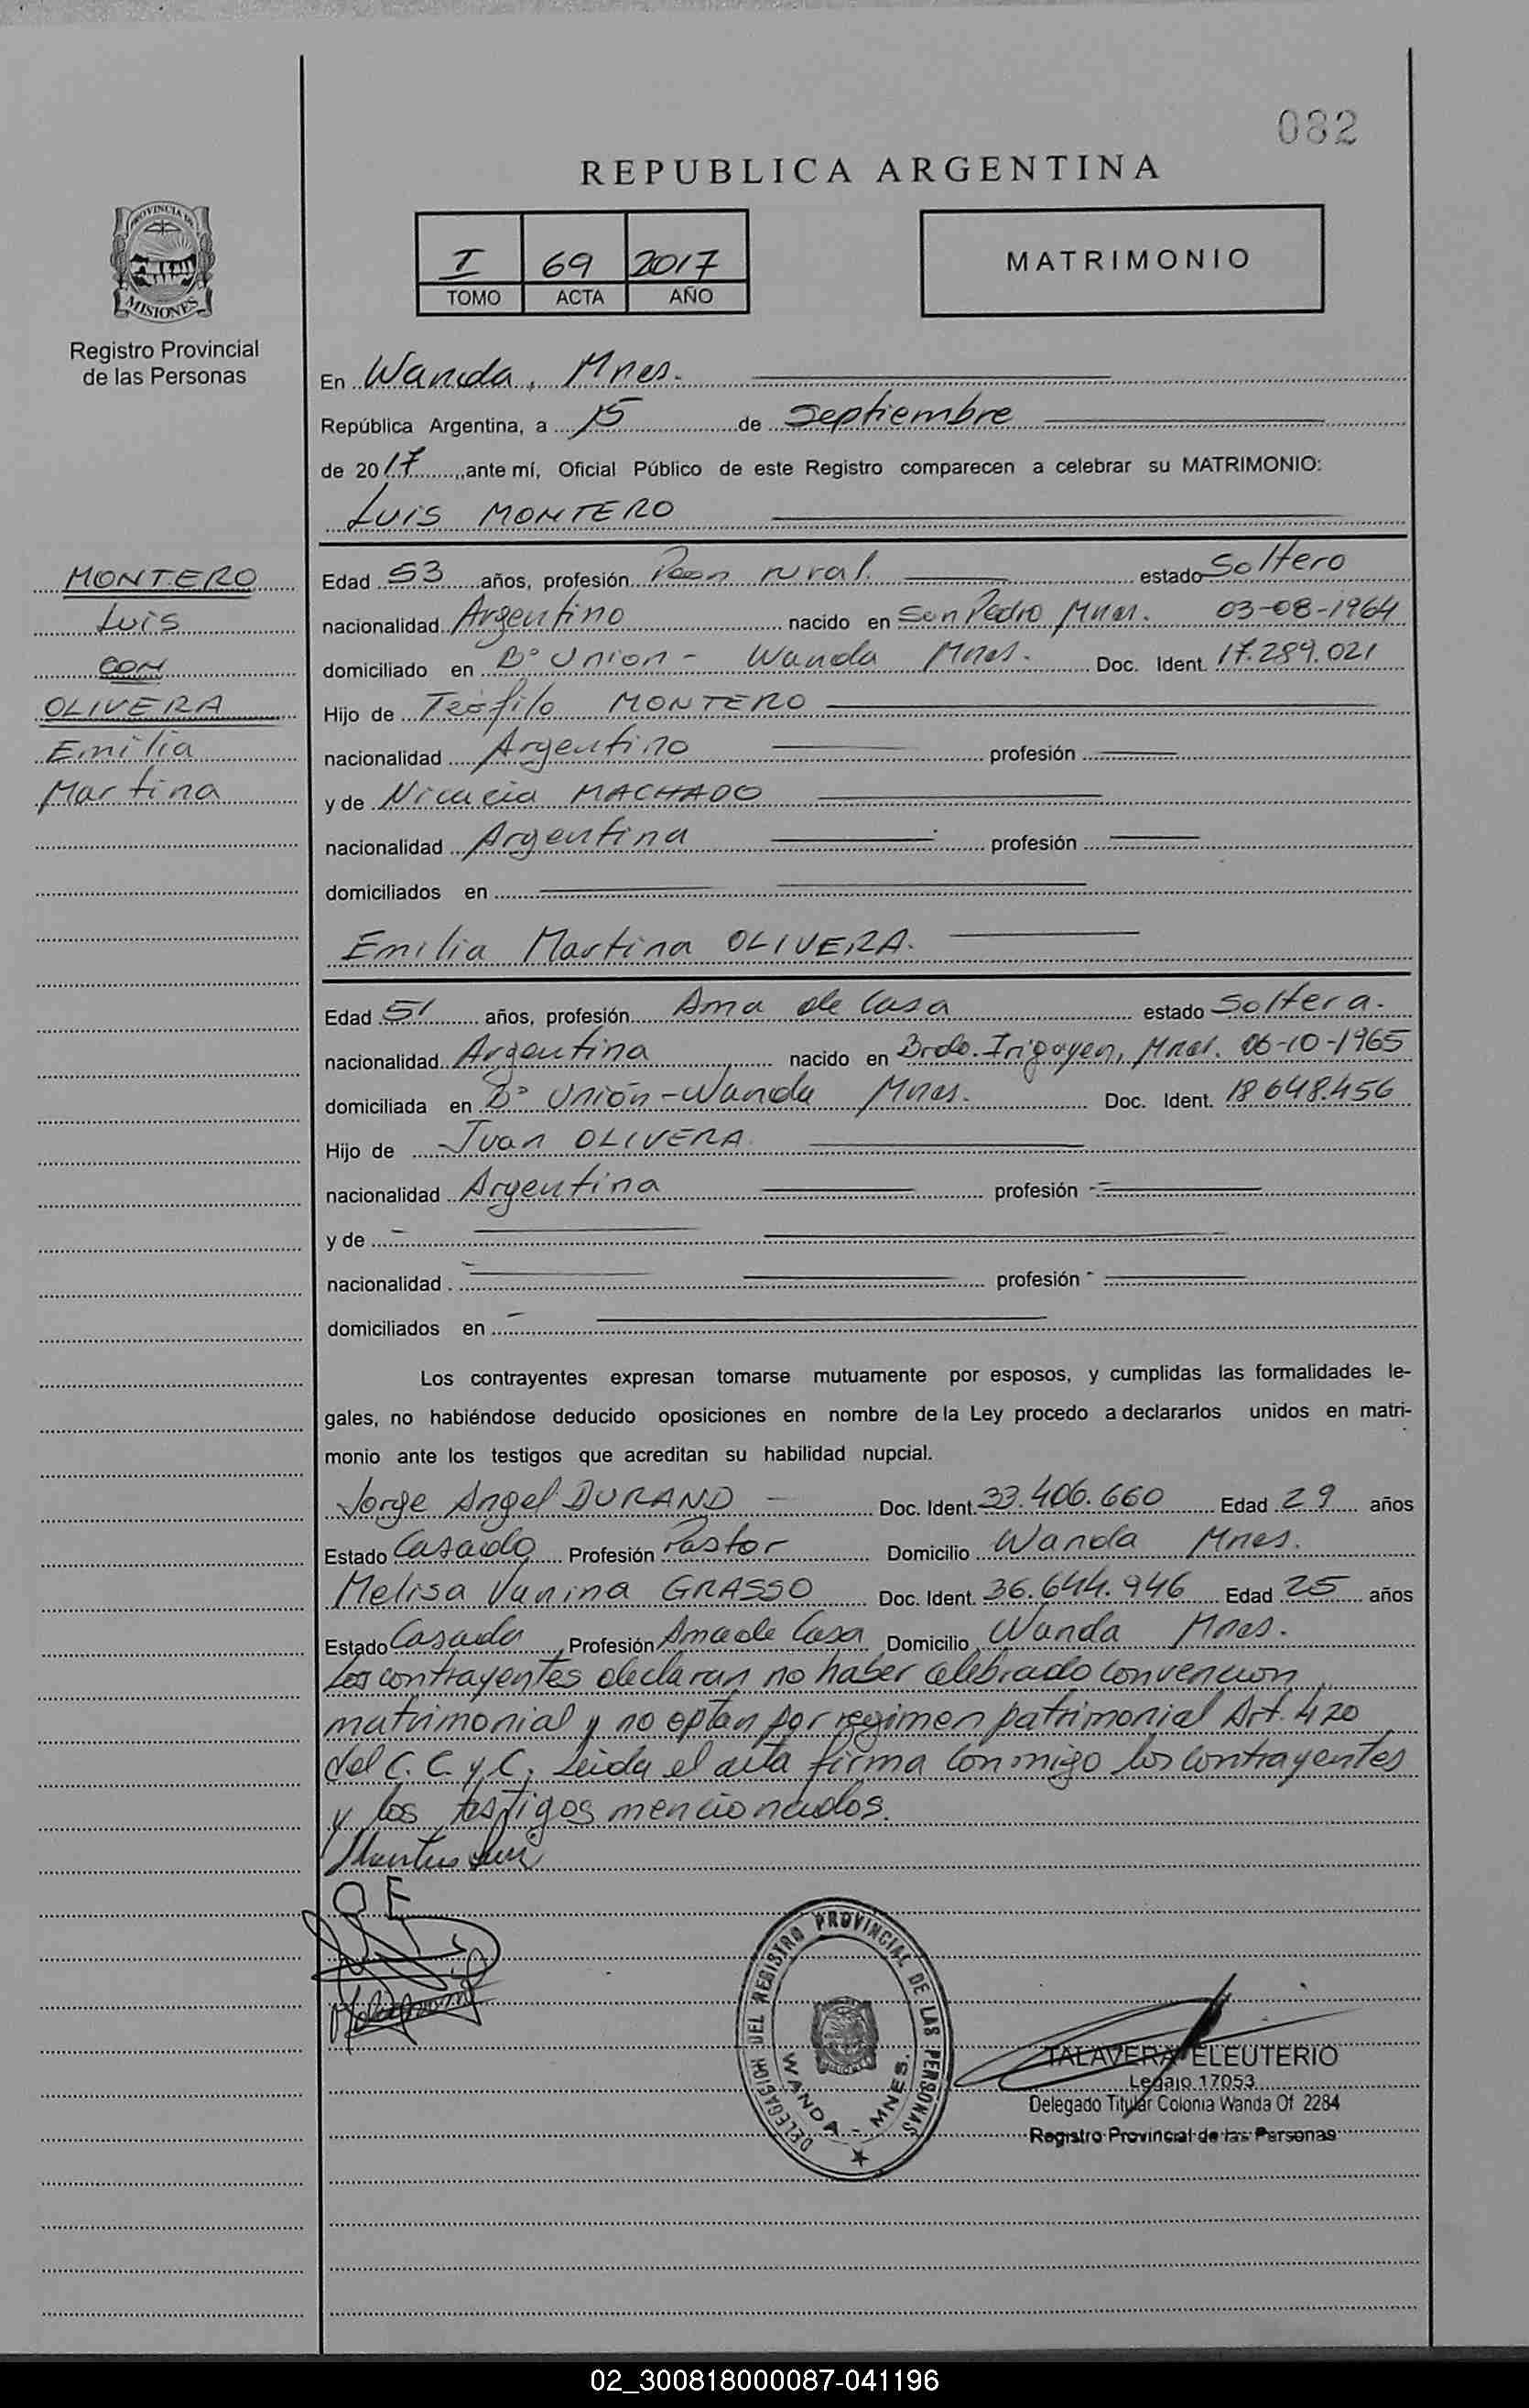 082
REPUBLICA ARGENTINA
PROVINCIA DE
MISIONES
Registro Provincial
de las Personas
I 69 2017
TOMO ACTA AÑO
MATRIMONIO
En Wanda, Mnes.
República Argentina, a 15 de Septiembre
de 2017, ante mí, Oficial Público de este Registro comparecen a celebrar su MATRIMONIO:
Luis MONTERO
MONTERO
Luis
CON
OLIVERA
Emilia
Martina
Edad 53 años, profesión Peon rural. estado Soltero
nacionalidad Argentino nacido en San Pedro Mnes. 03-08-1964
domiciliado en B° Union - Wanda Mnes. Doc. Ident. 17.289.021
Hijo de Teófilo MONTERO
nacionalidad Argentino profesión
y de Nicacia MACHADO
nacionalidad Argentina profesión
domiciliados en
Emilia Martina OLIVERA.
Edad 51 años, profesión Ama de Casa estado Soltera.
nacionalidad Argentina nacido en Brdo. Irigoyen, Mnes. 06-10-1965
domiciliada en B° Unión - Wanda Mnes. Doc. Ident. 18.648.456
Hijo de Juan OLIVERA
nacionalidad Argentina profesión
y de
nacionalidad profesión
domiciliados en
Los contrayentes expresan tomarse mutuamente por esposos, y cumplidas las formalidades le-
gales, no habiéndose deducido oposiciones en nombre de la Ley procedo a declararlos unidos en matri-
monio ante los testigos que acreditan su habilidad nupcial.
Jorge Angel DURAND Doc. Ident. 33.406.660 Edad 29 años
Estado Casado Profesión Pastor Domicilio Wanda Mnes.
Melisa Vanina GRASSO Doc. Ident. 36.644.946 Edad 25 años
Estado Casada Profesión Ama de Casa Domicilio Wanda Mnes.
Los contrayentes declaran no haber celebrado convencion
matrimonial y no optan por regimen patrimonial Art. 420
del C. C. y C. Leida el acta firma conmigo los contrayentes
y los testigos mencionados.
O E
DELEGACION DEL REGISTRO PROVINCIAL DE LAS PERSONAS
WANDA - MNES.
TALAVERA ELEUTERIO
Legajo 17053
Delegado Titular Colonia Wanda Of 2284
Registro Provincial de las Personas
02_300818000087-041196